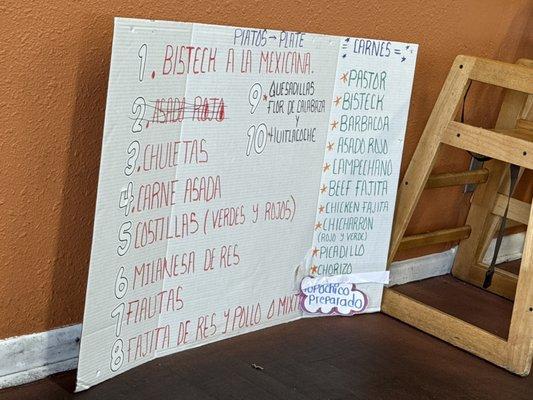 PLATOS → PLATE
1. BISTECK A LA MEXICANA.
2. ASADO ROJO
3. CHULETAS
4. CARNE ASADA
5 COSTILLAS (VERDES Y ROJOS)
6 MILANESA DE RES
7 FLAUTAS
8 FAJITA DE RES Y POLLO O MIXT
9. QUESADILLAS
FLOR DE CALABAZA
Y
10 HUITLACOCHE
= CARNES =
* PASTOR
* BISTECK
* BARBACOA
* ASADO ROJO
* CAMPECHANO
* BEEF FAJITA
* CHICKEN FAJITA
* CHICHARRON
(ROJO Y VERDE)
* PICADILLO
* CHORIZO
TOPOCHICO
PREPARADO